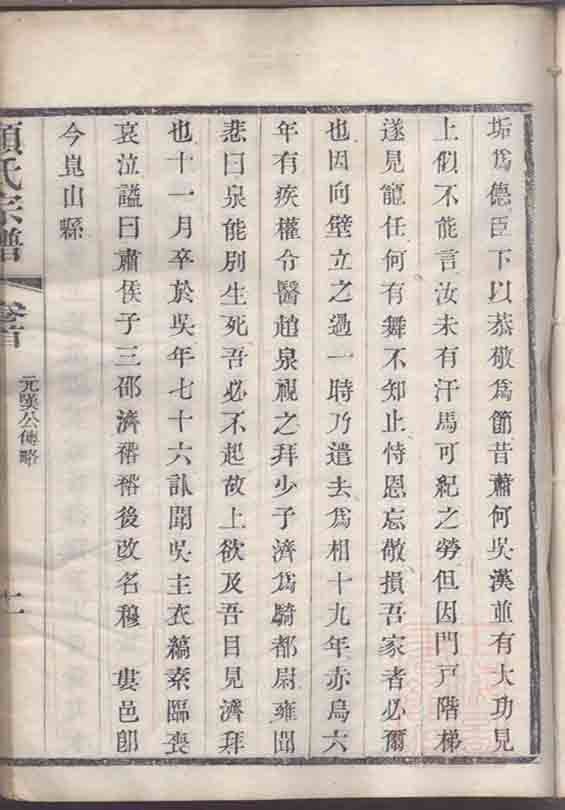 垢爲德臣下以恭敬爲節昔蕭何吳漢並有大功見
上似不能言汝未有汗馬可紀之勞但因門戶階梯
遂見寵任何有舞不知止恃恩忘敬損吾家者必爾
也因向壁立之過一時乃遣去爲相十九年赤烏六
年有疾權令醫趙泉視之拜少子濟爲騎都尉雍聞
悲曰泉能別生死吾必不起故上欲及吾目見濟拜
也十一月卒於吳年七十六訃聞吳主衣縞素臨喪
哀泣諡曰肅侯子三邵濟裕裕後改名穆 婁邑卽
今崑山縣
顧氏宗譜
卷首
元嘆公傳略